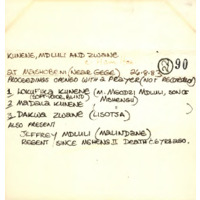 KUNENE, MDLULI AND ZWANE
90
AT MASHOBENI (NEAR GEGE) 26-8-83
PROCEEDINGS OPENED WITH A PRAYER (NOT RECORDED)
1 LOKUFIKA KUNENE (M. MGODZI MDLULI, SON OF
(SOFT-VOICE, BLIND) MSHENGU)
2 MADALA KUNENE
3 DAKWA ZWANE (LISOTJA)
ALSO PRESENT
JEFFREY MDLULI (MALINDANE)
REGENT SINCE DEATH 6 YRS AGO.